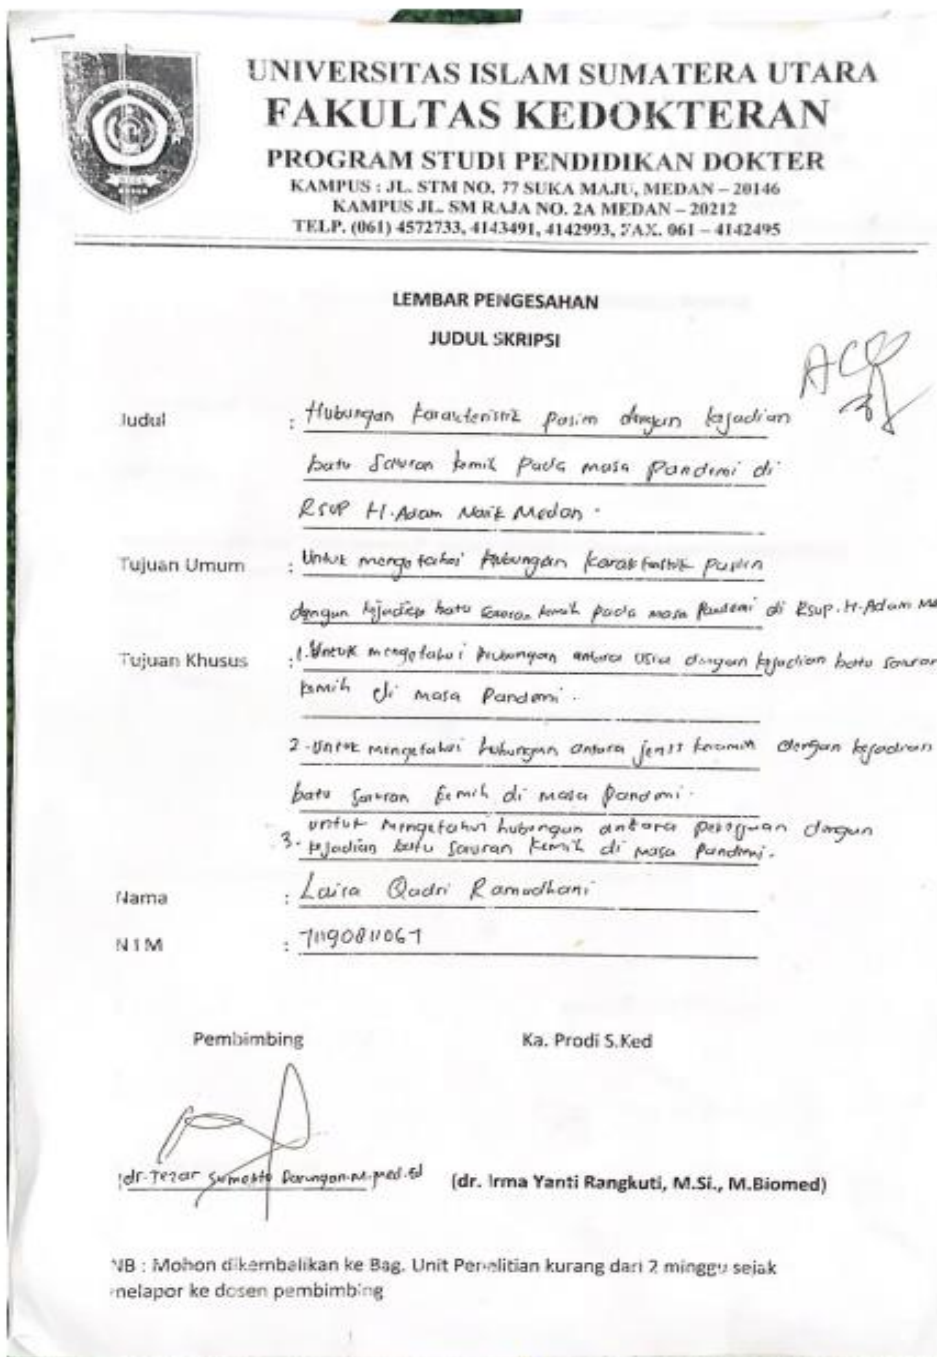 UNIVERSITAS ISLAM SUMATERA UTARA
FAKULTAS KEDOKTERAN
PROGRAM STUDI PENDIDIKAN DOKTER
KAMPUS : JL. STM NO. 77 SUKA MAJU, MEDAN – 20146
KAMPUS JL. SM RAJA NO. 2A MEDAN – 20212
TELP. (061) 4572733, 4143491, 4142993, FAX. 061 – 4142495
LEMBAR PENGESAHAN
JUDUL SKRIPSI
ACC
Judul : Hubungan karakteristik pasien dengan kejadian
batu saluran kemih pada masa Pandemi di
RSUP H. Adam Malik Medan.
Tujuan Umum : Untuk mengetahui hubungan karakteristik pasien
dengan kejadian batu saluran kemih pada masa Pandemi di Rsup. H. Adam Ma
Tujuan Khusus : 1. Untuk mengetahui hubungan antara usia dengan kejadian batu saluran
kemih di masa Pandemi.
2. Untuk mengetahui hubungan antara jenis kelamin dengan kejadian
batu saluran kemih di masa Pandemi.
3. untuk mengetahui hubungan antara pekerjaan dengan
kejadian batu saluran kemih di masa Pandemi.
Nama : Laira Qadri Ramadhani
NIM : 71190811067
Pembimbing Ka. Prodi S.Ked
(dr. Tezar Sumantri Darungan. M. Med. Ed (dr. Irma Yanti Rangkuti, M.Si., M.Biomed)
NB : Mohon dikembalikan ke Bag. Unit Penelitian kurang dari 2 minggu sejak
melapor ke dosen pembimbing